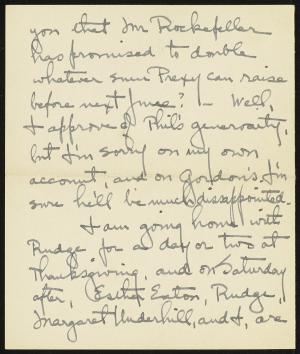 you that Mr Rockefeller
has promised to double
whatever sum Prexy can raise
before next June? — Well,
I approve of Phil's generosity,
but I'm sorry on my own
account, and on Gordon's, I'm
sure he'll be much disappointed.
I am going home with
Rudge for a day or two at
Thanksgiving, and on Saturday
after, Esther Eaton, Rudge,
Margaret Underhill, and I, are